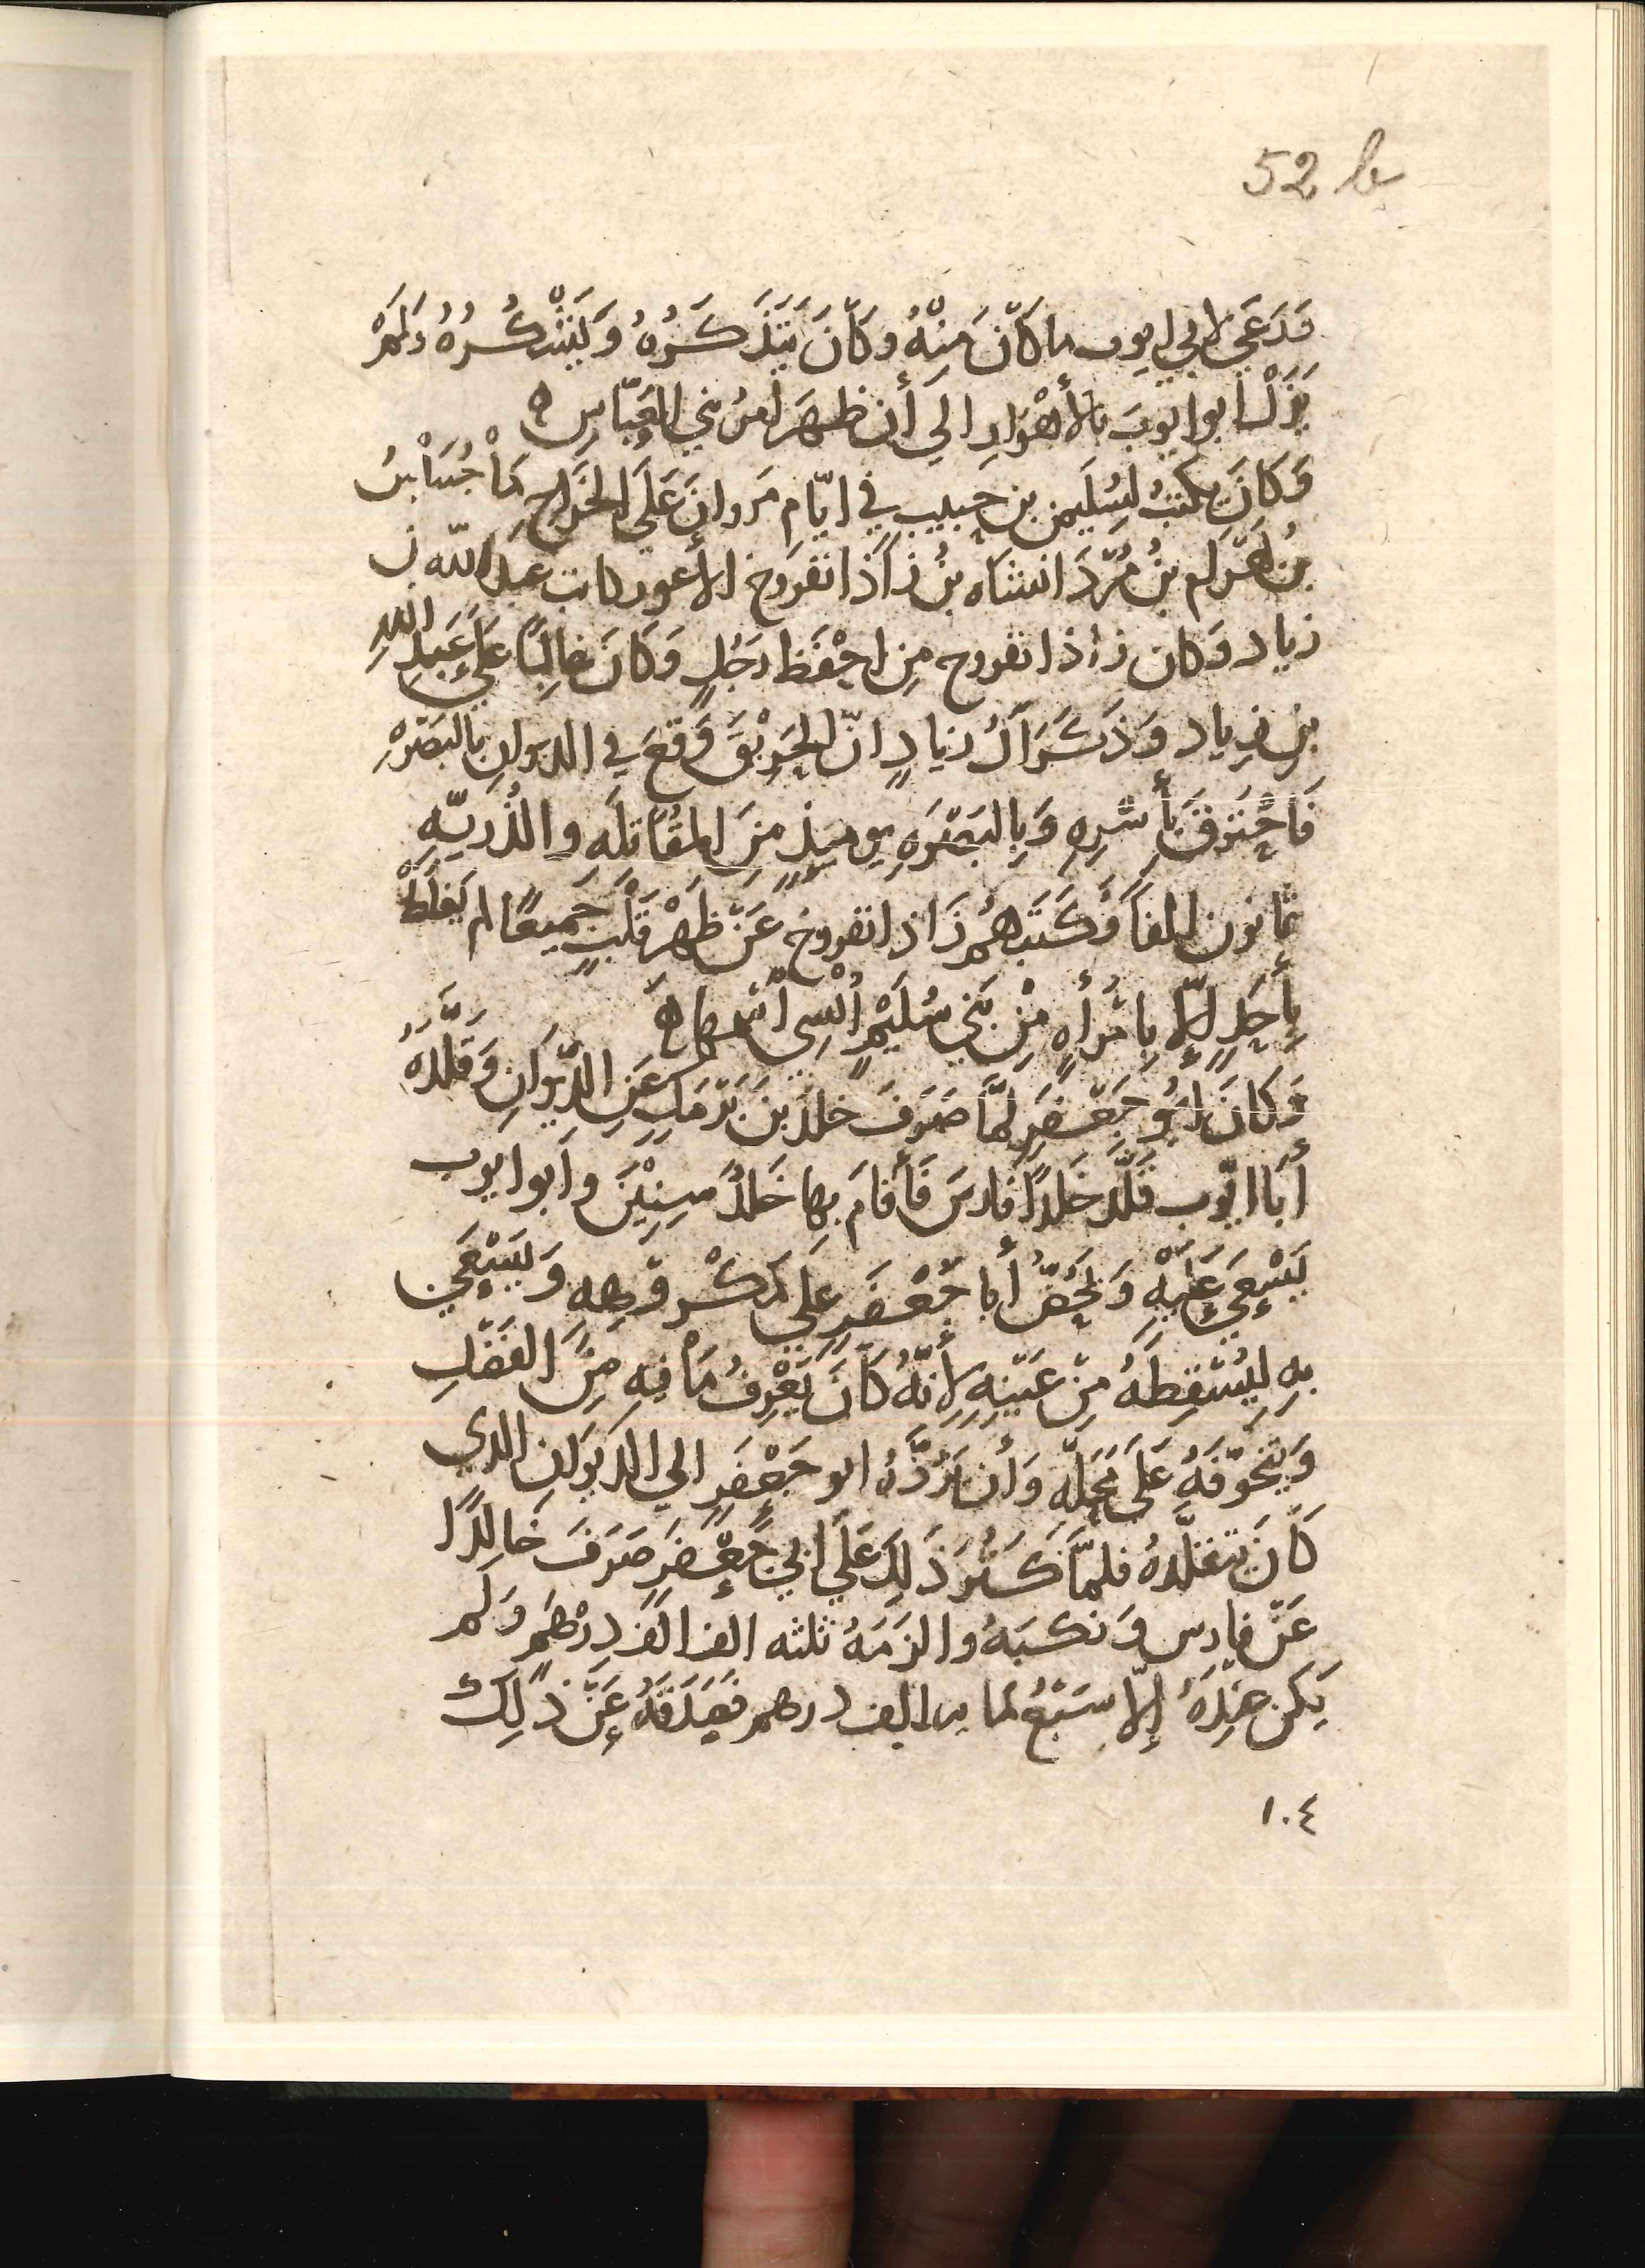 52 b
وَرَعَى لابي ايوب ما كانَ مِنْهُ وكانَ يَتَذَكَّرُهُ وَيَشْكُرُهُ وَلَمْ
يَزَلْ ابو ايوبَ بالأَهْوَازِ الي أن ظهَرَ أمرُ بني العَبّاسِ ه
وَكَانَ يكتبُ لِسُلَيمن بن حبيب في ايّام مَروانَ عَلَى الخَرَاجِ مَاْجُشَاْنَسُ
بنُ بَهْرَام بنُ مُرْدَانشَاه بنُ زاذانفروخ الأعور كاتب عبيدالله بن
زياد وَكان زاذانفروح مِن احْفَظ رَجُلٍ وَكَانَ غالِبًا عَلَى عُبَيْدِ اللهِ
بن زياد وَذَكَرَ آلُ زيادٍ انّ الحَرِيْقَ وَقَعَ في الديوانِ بالبَصْرَةِ
فَاحْتَرَقَ بأَسْرِهِ وَبِالبَصْرَهِ يوميذٍ مِنَ المُقَاتلَهِ والذُريّهِ
ثمانون الفاً وَكَتَبهُم زَاذانفروخ عَنْ ظَهْرِ قَلْبٍ جَمِيعًا لم يَغْلَطْ
بِأَحَدٍ إلّا بِامْرَأهٍ مِنْ بَنِي سُلَيْمٍ أُنْسِيَ اْسمها ه
وَكانَ ابُو جَعْفَرٍ لمَّا صَرَفَ خلدَ بنَ بَرْمَك عَنِ الدِّيْوَانِ وَقَلَّدَهُ
أَبَا ايّوب قَلَّدَ خَلدًا فارسَ فَأَقامَ بها خَلدٌ سِنِيْنَ وأبوا يوب
يَسْعَي عَلَيْهِ وَيَحُضُّ أبا جَعْفَرٍ عَلَى مَكْروهِهِ وَيَسْعَي
بِهِ لِيُسْقِطَهُ مِنْ عَيْنِهِ لأنّهُ كانَ يَعْرِفُ مَا فيهِ مِنَ الفَضْلِ
وَيَتَخَوّفَهُ عَلَى مَحَلّهِ وَأن يَرُدَّهُ ابو جَعْفَرٍ الي الديوَانِ الذي
كَانَ يتقلَّدهُ فلمَّا كَثُرَ ذَلِكَ عَلَى ابي جَعْفَرٍ صَرَفَ خَالِدًا
عَنْ فارس وَنكبَهُ والزَمَهُ ثلثه الف الف دِرْهَمٍ وَلَم
يَكن عِنْدَهُ إلّا سَبْعُ مَا يه الف درهم فصَدَقَهُ عَنْ ذَلِكَ
١٠٤